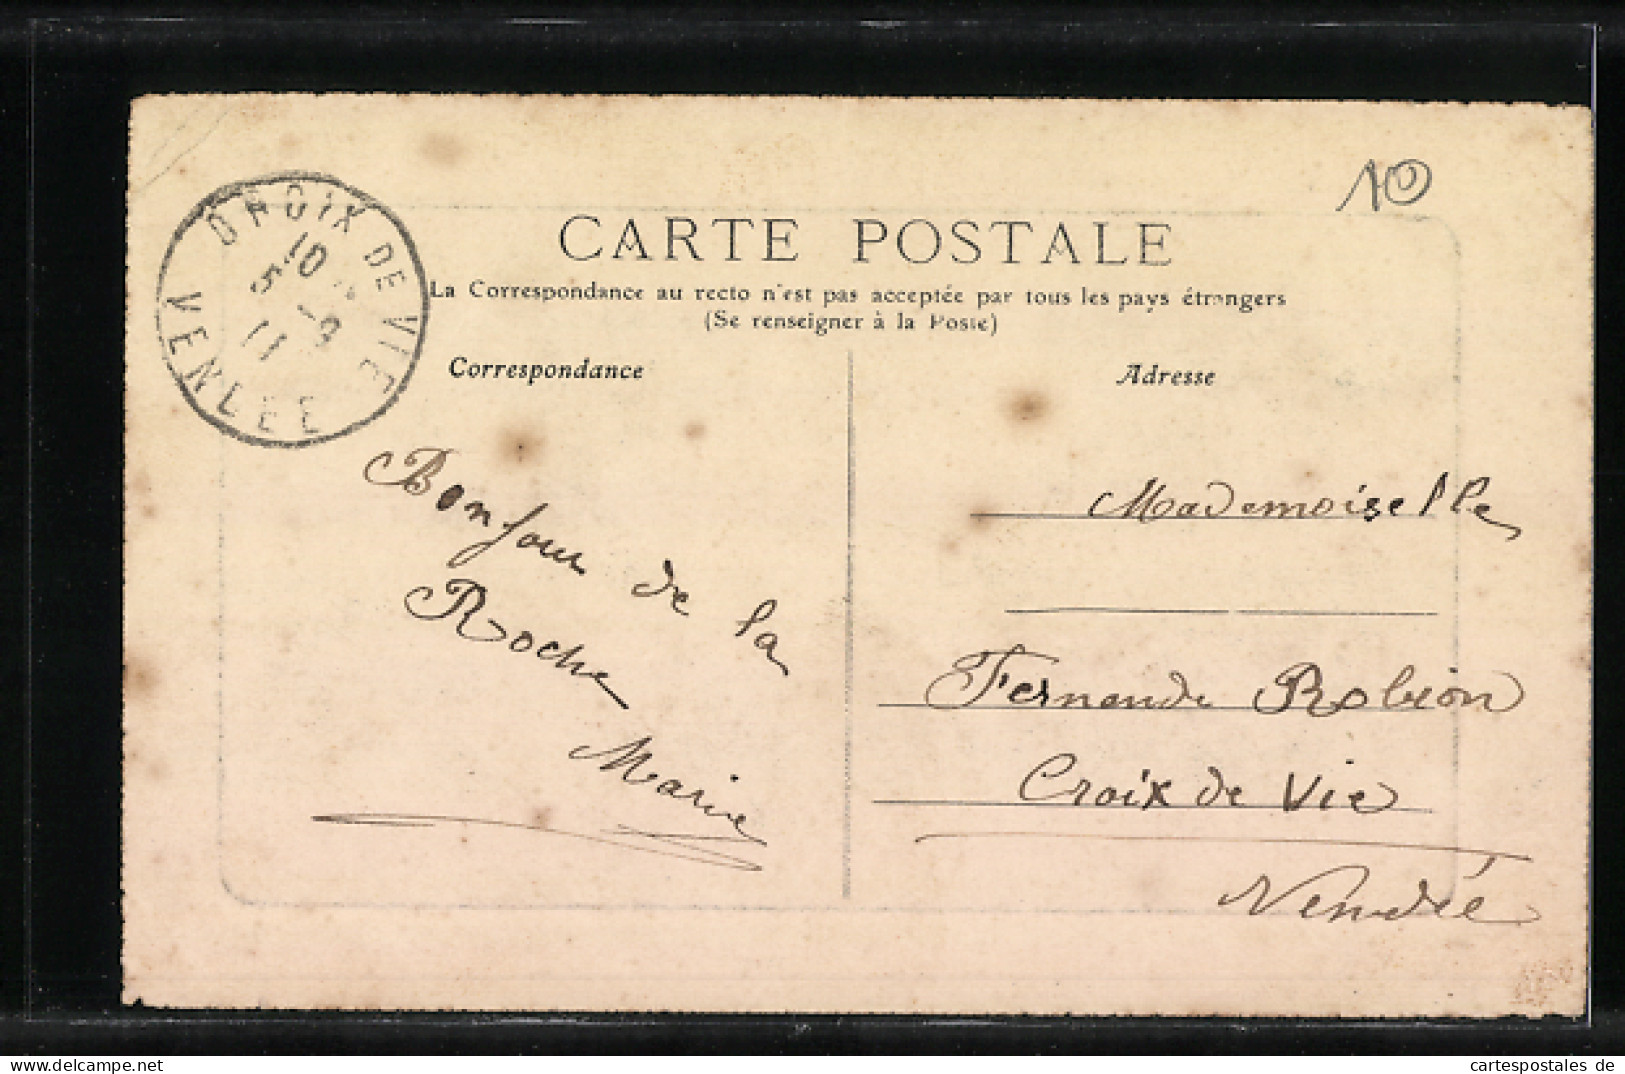 10
CROIX DE VIE
10
5 -9
11
VENDEE
CARTE POSTALE
La Correspondance au recto n'est pas acceptée par tous les pays étrangers
(Se renseigner à la Poste)
Correspondance
Adresse
Bonjour de la
Roche
Marie
Mademoiselle
Fernande Robion
Croix de Vie
Vendée
www.delcampe.net
cartespostales de